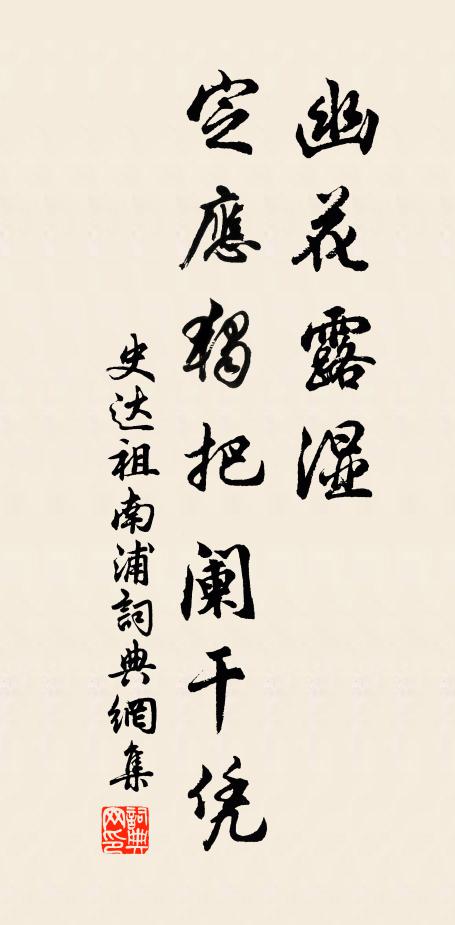 幽花露濕
定應獨把阑干凭
史达祖南浦詞典網集
詞典网印